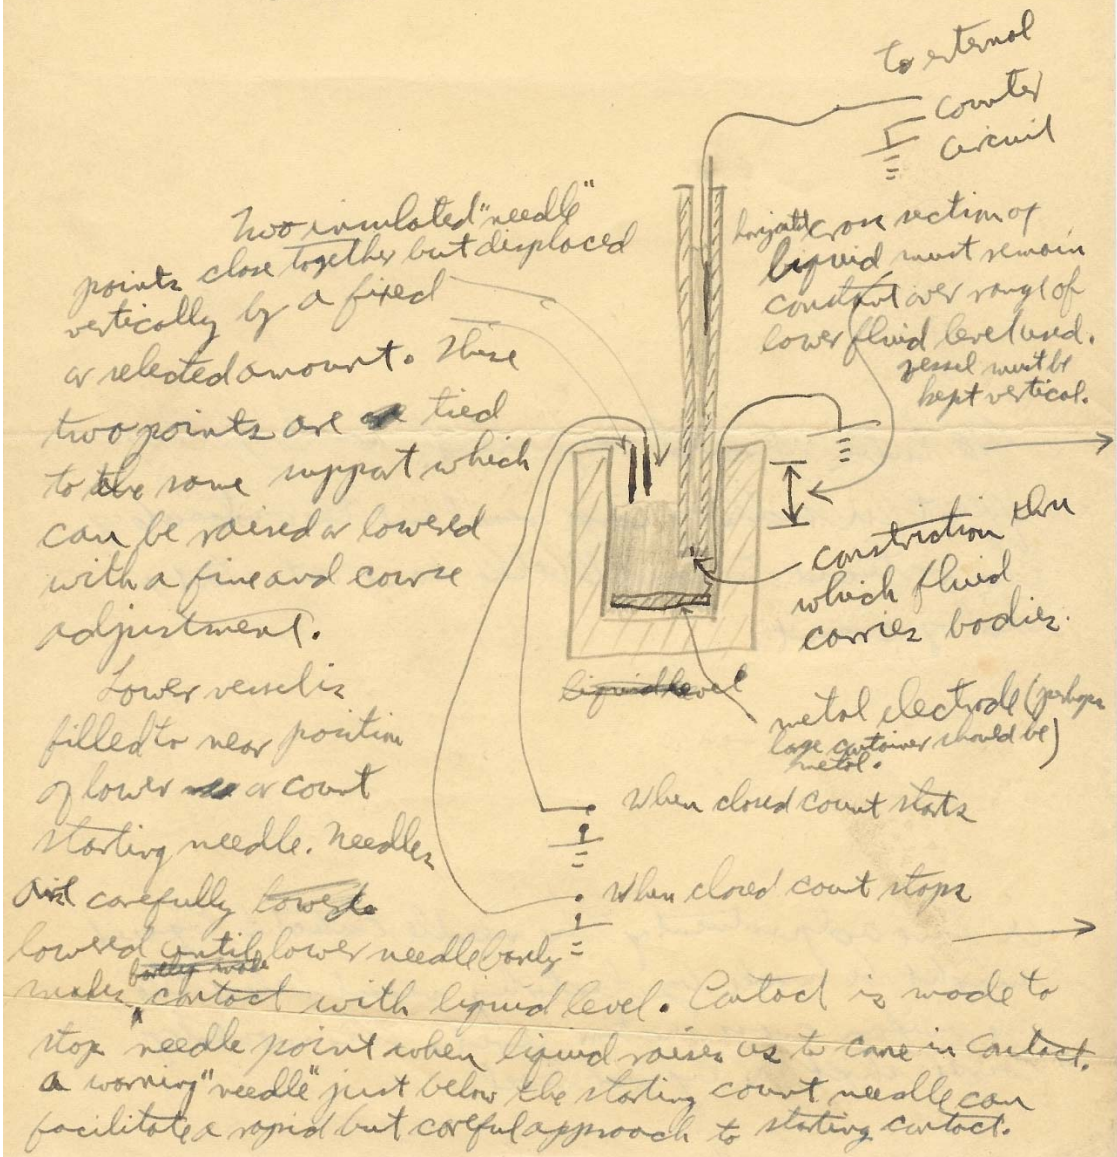 to external
counter
circuit
Two insulated "needle"
points close together but displaced
vertically by a fixed
or selected amount. These
two points are tied
to the same support which
can be raised or lowered
with a fine and course
adjustment.
Lower vessel is
filled to near position
of lower or count
starting needle. Needles
are carefully lowered
lowered until lower needle barely
makes barely made contact with liquid level. Contact is made to
stop needle point when liquid raises us to come in contact.
a warning "needle" just below the starting count needle can
facilitate a rapid but careful approach to starting contact.
horizontal cross section of
liquid must remain
constant over range of
lower fluid level used.
vessel must be
kept vertical.
constriction thru
which fluid
carries bodies.
liquid level
metal electrode (perhaps
large container should be)
metal.
When closed count starts
When closed count stops